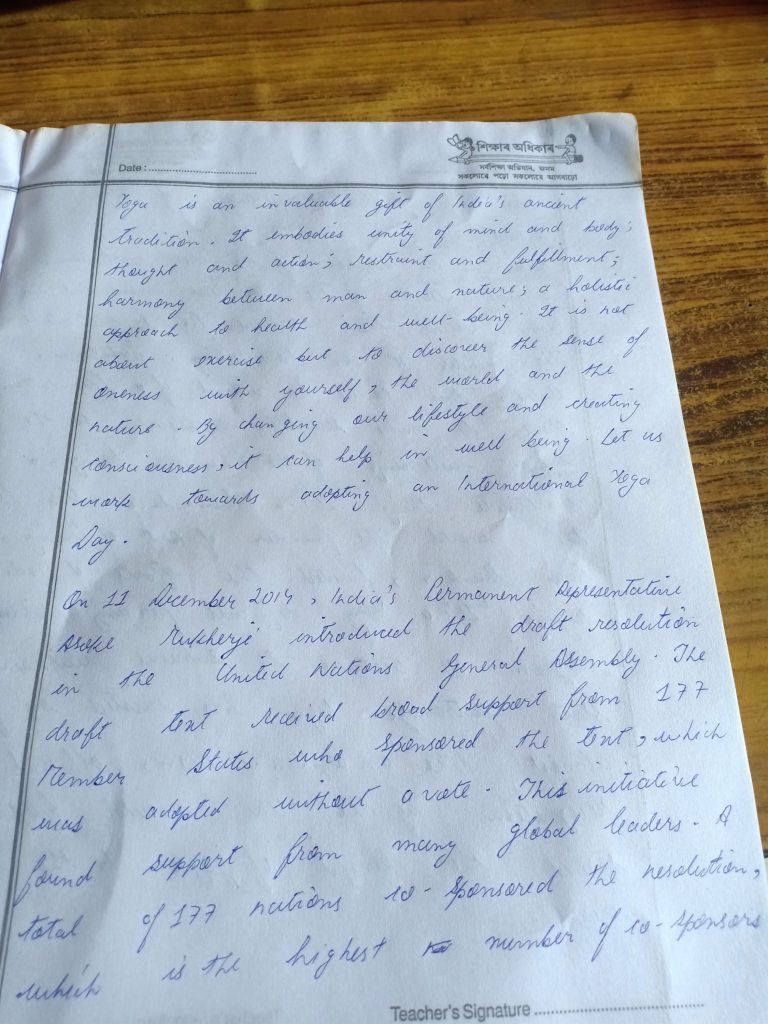 শিক্ষাৰ অধিকাৰ
সৰ্বশিক্ষা অভিযান, অসম
সকলোৱে পঢ়ো সকলোৱে আগবাঢ়ো
Date :
Yoga is an invaluable gift of India's ancient
tradition. It embodies unity of mind and body;
thought and action; restraint and fulfillment;
harmony between man and nature; a holistic
approach to health and well-being. It is not
about exercise but to discover the sense of
oneness with yourself, the world and the
nature. By changing our lifestyle and creating
consciousness, it can help in well being. Let us
work towards adopting an International Yoga
Day.
On 11 December 2014, India's Permanent Representative
Asoke Mukherje introduced the draft resolution
in the United Nations General Assembly. The
draft text received broad support from 177
Member States who sponsored the text, which
was adopted without a vote. This initiative
found support from many global leaders. A
total of 177 nations co-sponsored the resolution,
which is the highest number of co-sponsors
Teacher's Signature